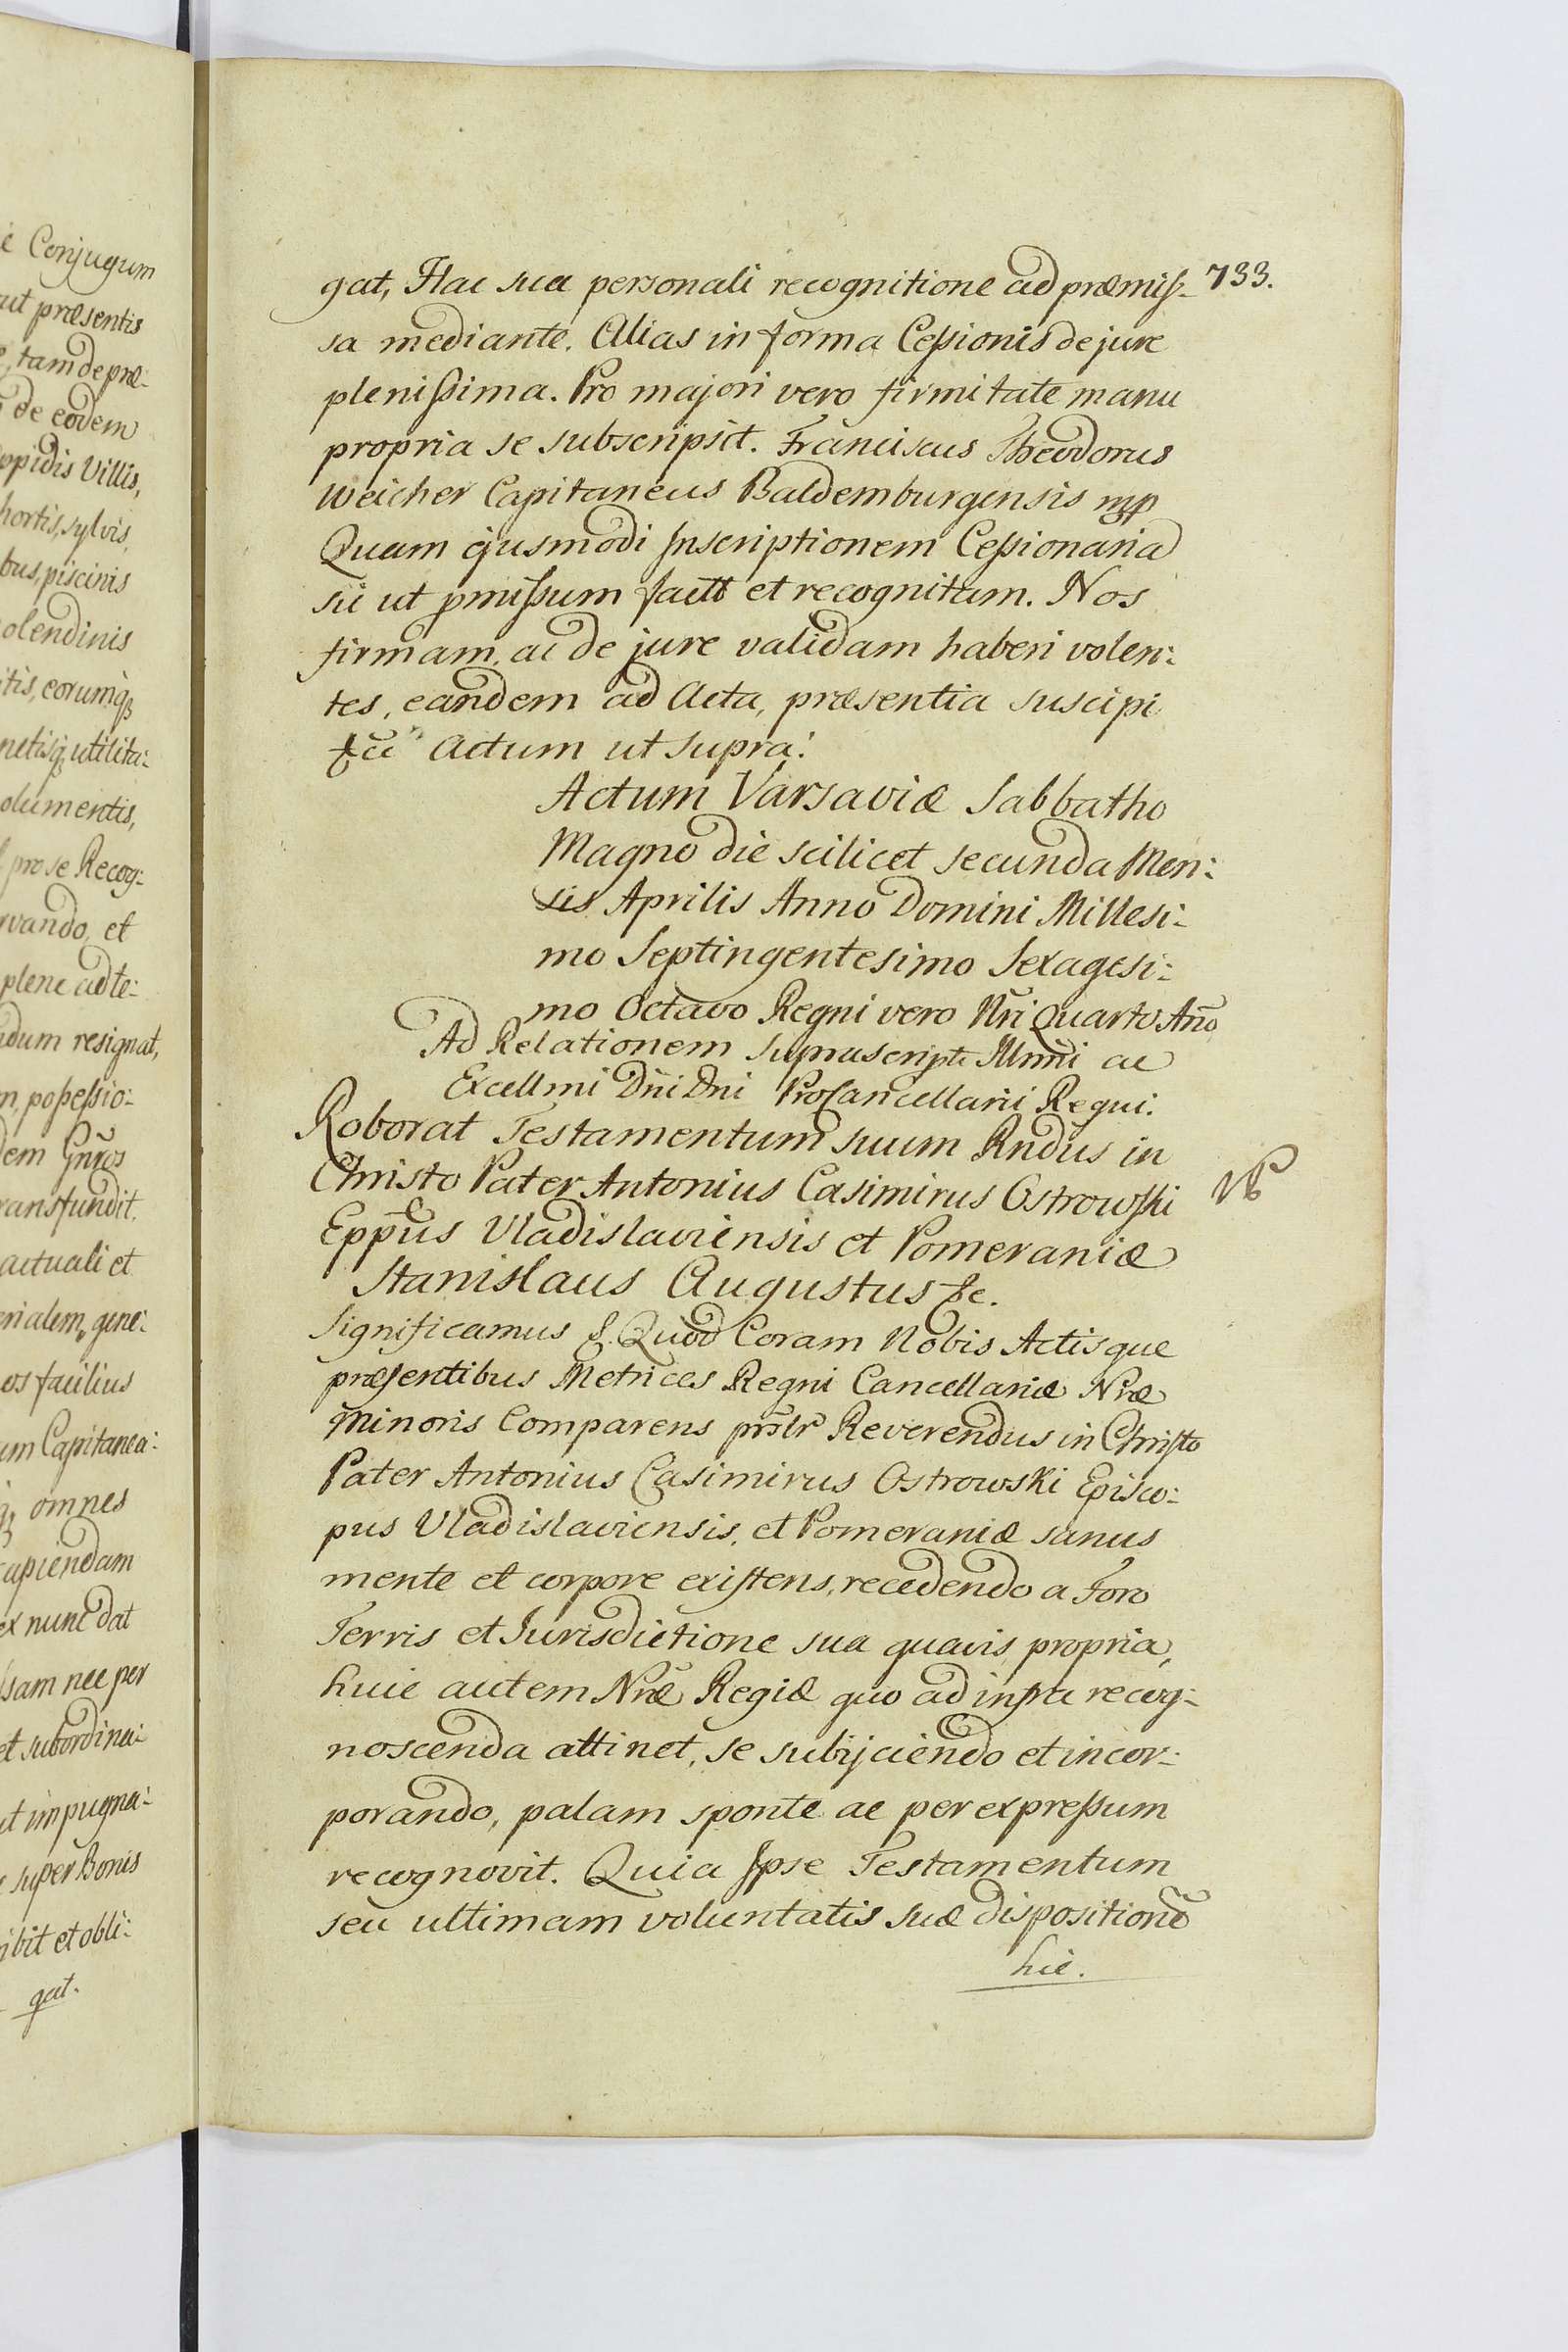 e Conjugum
ut præsentis
tam de præ-
de eodem
ppidis Villis,
hortis, sylvis,
bus, piscinis
olendinis
itis, eorumq,
netisq, utilita-
olumentis,
pro se Recog-
rvando, et
plene ad te-
dum resignat,
n, poßeßio-
dem Gnros
ransfundit.
actuali et
rialem, gene-
os facilius
um Capitanea-
q, omnes
capiendam
ex nunc dat
sam nec per
et subordina-
et impugna-
super Bonis
ibit et obli-
gat.
733.
gat, Hac sua personali recognitione ad præmiß-
sa mediante. Alias in forma Ceßionis de jure
pleniß​ima. Pro majori vero firmitate manu
propria se subscripsit. Franciscus Theodorus
Weicher Capitaneus Baldemburgensis mp
Quam ejusmodi Inscriptionem Ceßionaria
sũ ut pmißum factt et recognitam. Nos
firmam, ac de jure validam haberi volen-
tes, eandem ad Acta, præsentia suscipi
Actum ut supra.
Actum Varsaviæ Sabbatho
Magno die scilicet secunda Men-
sis Aprilis Anno Domini Millesi-
mo Septingentesimo Sexagesi-
mo Octavo Regni vero Nri Quarto Ano
Ad Relationem suprascripti Illmi ac
Excellmi Dni Dni ProCancellarii Regni.
Roborat Testamentum suum Rndus in
Christo Pater Antonius Casimirus Ostrowski
Eppus Vladislaviensis et Pomeraniæ
Stanislaus Augustus &c.
Significamus &. Quod Coram Nobis Actisque
præsentibus Metrices Regni Cancellariæ Nræ
Minoris Comparens prslr Reverendus in Christo
Pater Antonius Casimirus Ostrowski Episco-
pus Vladislaviensis, et Pomeraniæ sanus
mente et corpore existens, recedendo a Foro
Terris et Jurisdictione sua quavis propria,
huic autem Nræ Regiæ quo ad infra recog-
noscenda attinet, se subijciendo et incor-
porando, palam sponte ac per expreßum
recognovit. Quia Ipse Testamentum
seu ultimam voluntatis suæ dispositionẽ
hic.